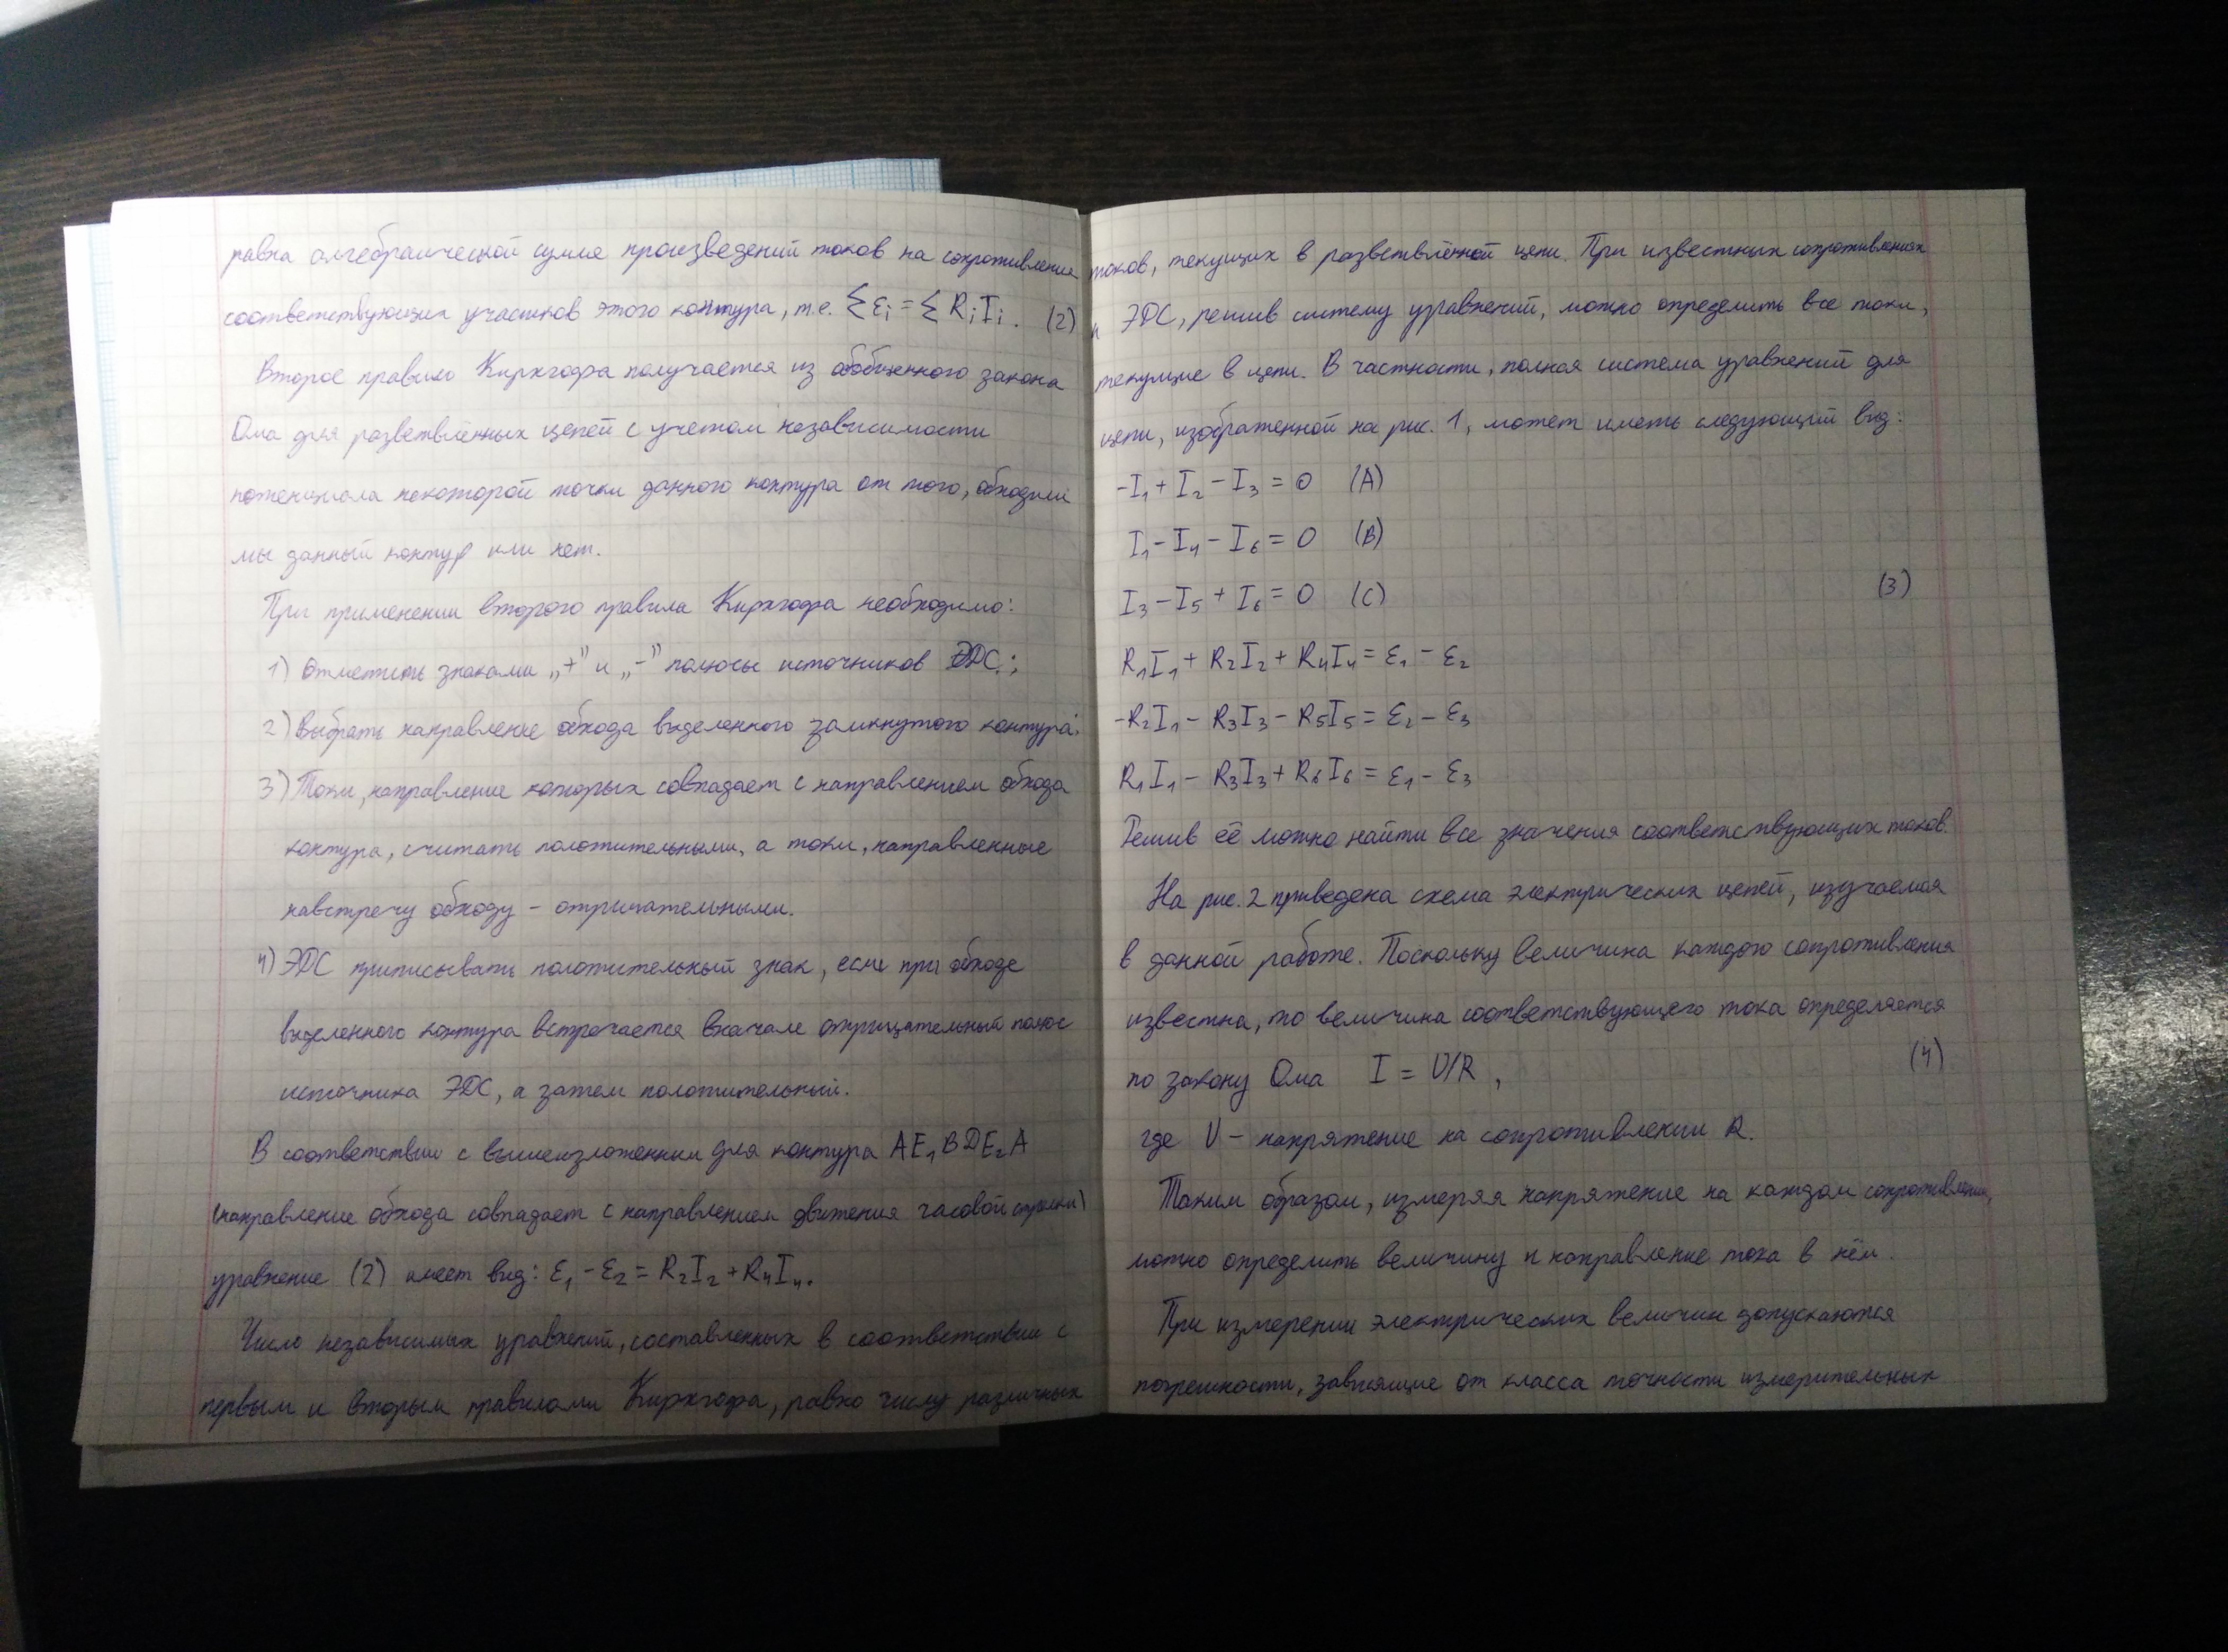 равна алгебраической сумме произведений токов на сопротивления
соответствующих участков этого контура, т.е. Σεᵢ = Σ RᵢIᵢ. (2)
Второе правило Кирхгофа получается из обобщенного закона
Ома для разветвлённых цепей с учетом независимости
потенциала некоторой точки данного контура от того, обходим
мы данный контур или нет.
При применении второго правила Кирхгофа необходимо:
1) Отметить знаками „+" и „-" полюсы источников ЭДС.;
2) Выбрать направление обхода выделенного замкнутого контура;
3) Токи, направление которых совпадает с направлением обхода
контура, считать положительными, а токи, направленные
навстречу обходу – отрицательными.
4) ЭДС приписывать положительный знак, если при обходе
выделенного контура встречается вначале отрицательный полюс
источника ЭДС, а затем положительный.
В соответствии с вышеизложенным для контура AE₁BDE₂A
(направление обхода совпадает с направлением движения часовой стрелки)
уравнение (2) имеет вид: ε₁ - ε₂ = R₂I₂ + R₄I₄.
Число независимых уравнений, составленных в соответствии с
первым и вторым правилами Кирхгофа, равно числу различных
токов, текущих в разветвлённой цепи. При известных сопротивлениях
и ЭДС, решив систему уравнений, можно определить все токи,
текущие в цепи. В частности, полная система уравнений для
цепи, изображенной на рис. 1, может иметь следующий вид:
-I₁ + I₂ - I₃ = 0 (A)
I₁ - I₄ - I₆ = 0 (B)
I₃ - I₅ + I₆ = 0 (C) (3)
R₁I₁ + R₂I₂ + R₄I₄ = ε₁ - ε₂
-R₂I₁ - R₃I₃ - R₅I₅ = ε₂ - ε₃
R₁I₁ - R₃I₃ + R₆I₆ = ε₁ - ε₃
Решив её можно найти все значения соответствующих токов.
На рис. 2 приведена схема электрических цепей, изучаемая
в данной работе. Поскольку величина каждого сопротивления
известна, то величина соответствующего тока определяется
по закону Ома I = U/R, (4)
где U – напряжение на сопротивлении R.
Таким образом, измеряя напряжение на каждом сопротивлении,
можно определить величину и направление тока в нём.
При измерении электрических величин допускаются
погрешности, зависящие от класса точности измерительных